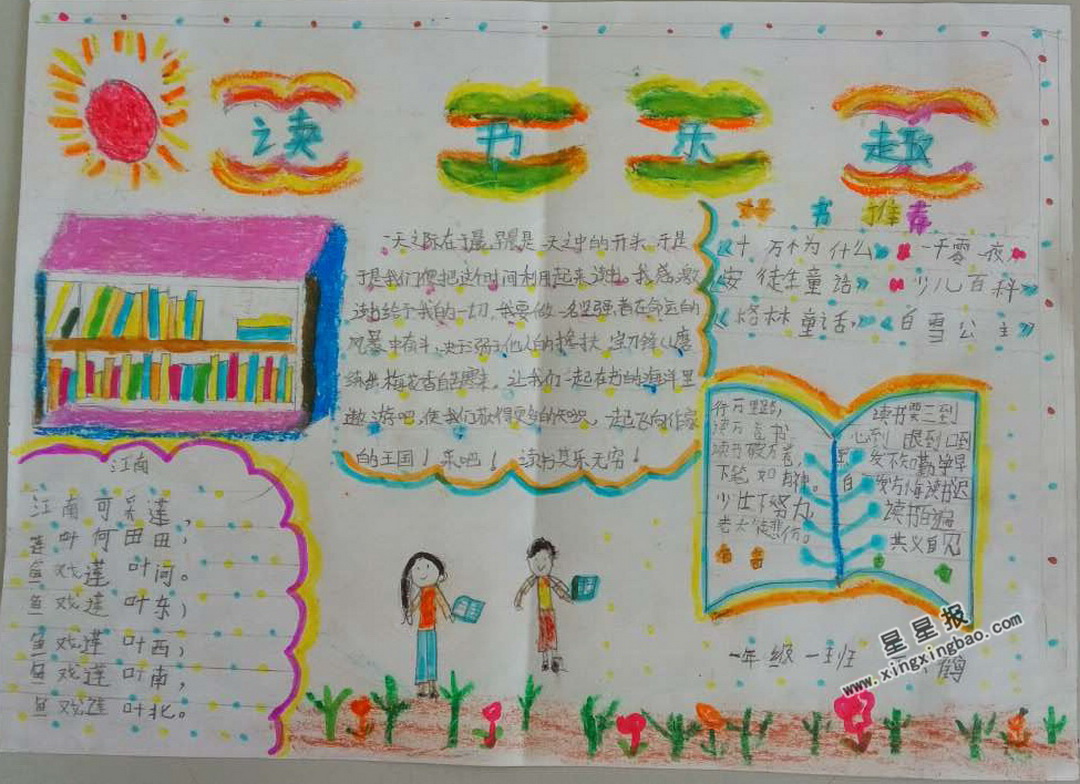 读书乐趣
一天之际在于晨,早晨是一天之中的开头,于是
于是我们便把这个时间利用起来读书。我感激
读书给于我的一切,我要做一名坚强者在命运的
风暴中奋斗,决不弱于他人的搀扶,宝刀锋从磨
练出,梅花香自苦寒来。让我们一起在书的海洋里
遨游吧,使我们获得更多的知识,一起飞向作家
的王国!来吧!读书其乐无穷!
好书推荐
《十万个为什么》《一千零一夜》
《安徒生童话》《少儿百科》
《格林童话》《白雪公主》
江南
江南可采莲,
莲叶何田田,
鱼戏莲叶间。
鱼戏莲叶东,
鱼戏莲叶西,
鱼戏莲叶南,
鱼戏莲叶北。
行万里路,
读万卷书
读书破万卷,
下笔如有神。
少壮不努力,
老大徒悲伤。
读书要三到
心到 眼到 口到
黑发不知勤学早
白
首方悔读书迟
读书百遍
其义自见
一年级一班
鹤
星星报
www.xingxingbao.com